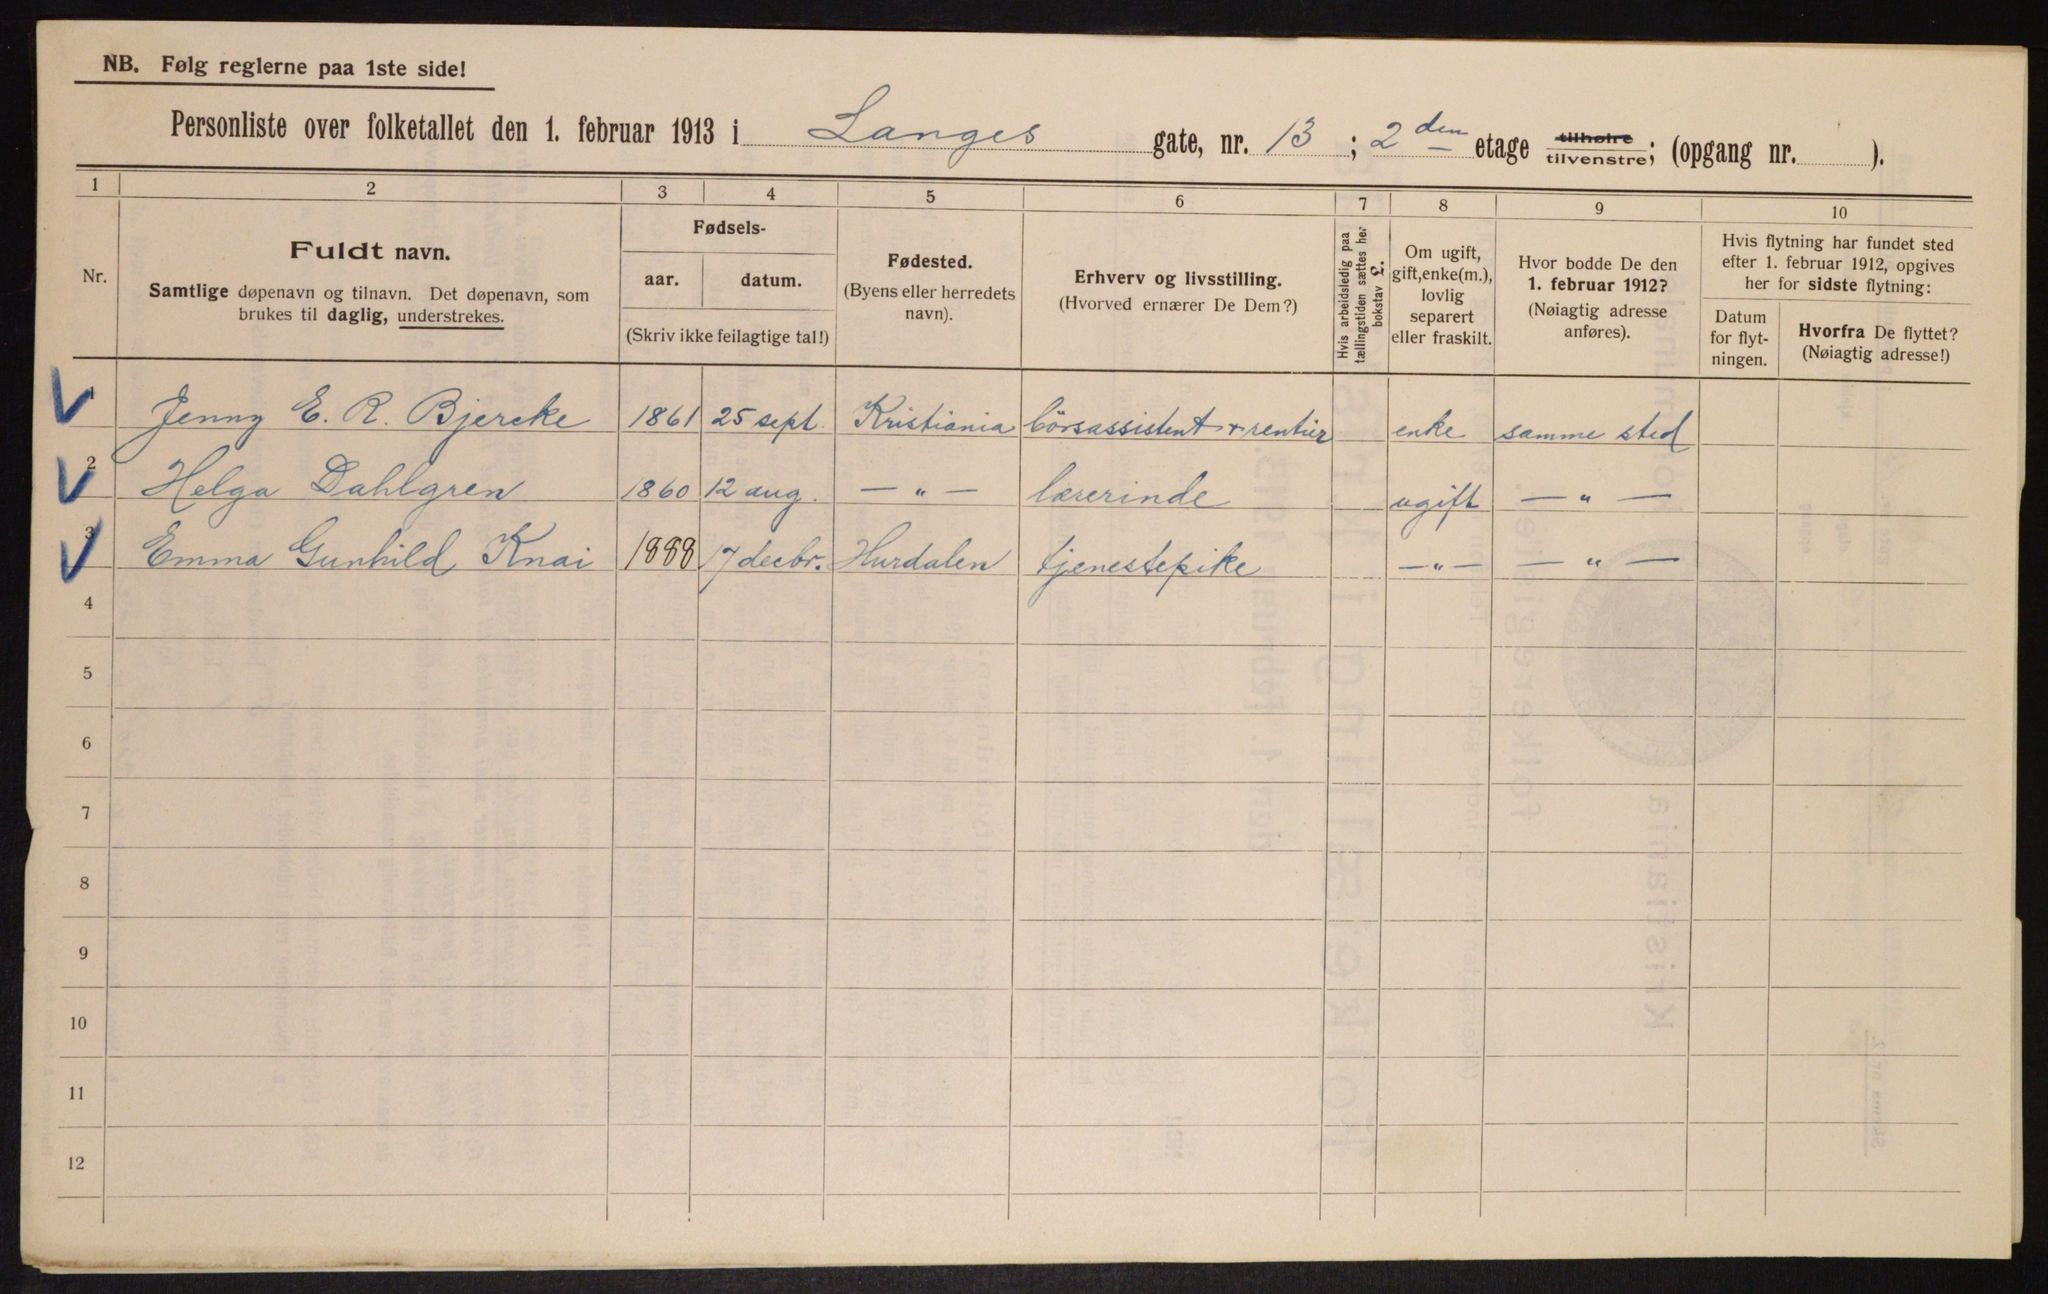 NB. Følg reglerne paa 1ste side!
Personliste over folketallet den 1. februar 1913 i Langes gate, nr. 13 ; 2 den etage tilhøire tilvenstre; (opgang nr. ).
1 2 3 4 5 6 7 8 9 10
Nr.
Fuldt navn.
Samtlige døpenavn og tilnavn. Det døpenavn, som
brukes til daglig, understrekes.
Fødsels-
aar. datum.
(Skriv ikke feilagtige tal!)
Fødested.
(Byens eller herredets
navn).
Erhverv og livsstilling.
(Hvorved ernærer De Dem?)
Hvis arbeidsledig paa
tællingstiden sættes her
bokstav L.
Om ugift,
gift, enke(m.),
lovlig
separert
eller fraskilt.
Hvor bodde De den
1. februar 1912?
(Nøiagtig adresse
anføres).
Hvis flytning har fundet sted
efter 1. februar 1912, opgives
her for sidste flytning:
Datum
for flyt-
ningen.
Hvorfra De flyttet?
(Nøiagtig adresse!)
1 Jenny E. R. Bjercke 1861 25 sept. Kristiania börsassistent + rentier enke samme sted
2 Helga Dahlgren 1860 12 aug. — " — lærerinde ugift — " —
3 Emma Gunhild Knai 1888 17 decbr. Hurdalen tjenestepike — " — — " —
4
5
6
7
8
9
10
11
12